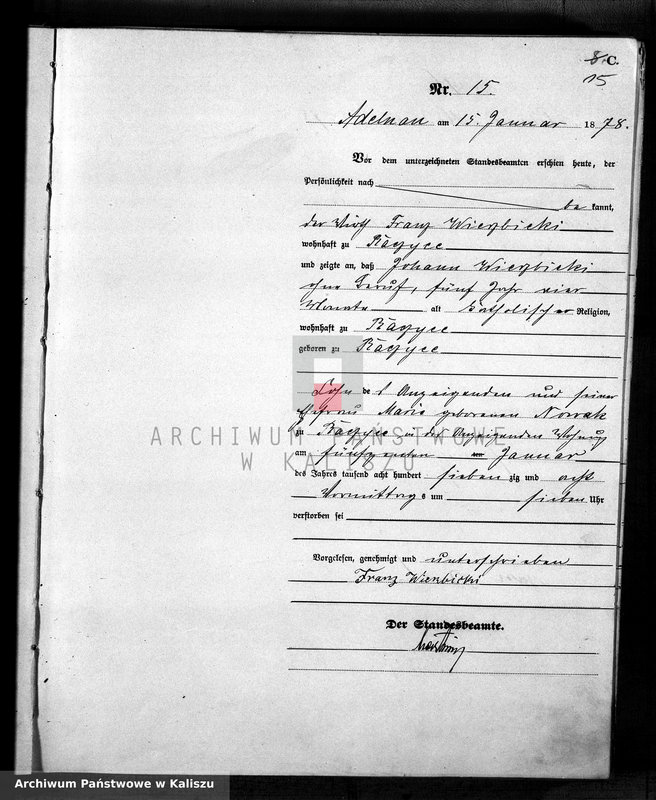 8. C.
15
Nr. 15.
Adelnau am 15. Januar 1878.
Vor dem unterzeichneten Standesbeamten erschien heute, der
Persönlichkeit nach
be kannt,
der Wirth Franz Wierzbicki
wohnhaft zu
und zeigte an, daß Johann Wierzbicki
ohne Beruf, fünf Jahr vier
Monate alt katholischer Religion,
wohnhaft zu
geboren zu
Sohn des Anzeigenden und seiner
Ehefrau Marie geborenen Nowak
zu in des Anzeigenden Wohnung
am fünfzehnten Januar
des Jahres tausend acht hundert sieben zig und acht
Vormittags um sieben Uhr
verstorben sei
Vorgelesen, genehmigt und unterschrieben
Franz Wierzbicki
Der Standesbeamte.
ARCHIWUM PAŃSTWOWE
W KALISZU
Archiwum Państwowe w Kaliszu